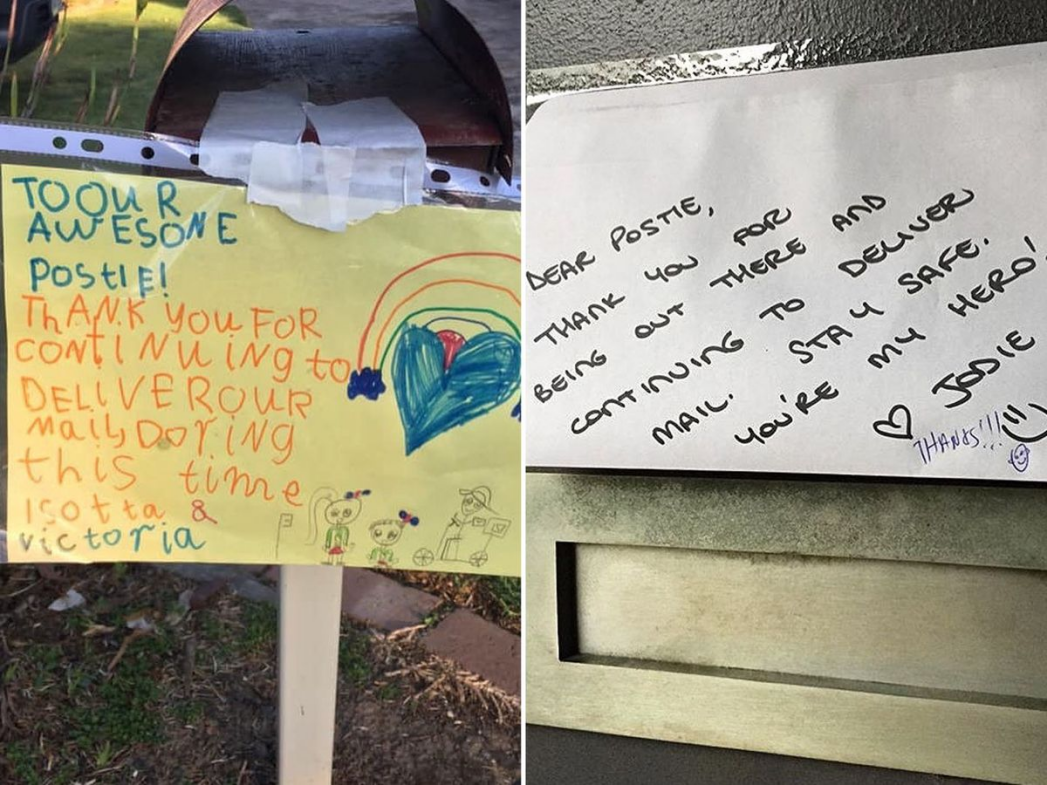 TO OUR
AWESONE
POSTIE!
THANK YOU FOR
CONTINUING to
DELIVER OUR
MAIL DORING
this time
ISOTTA &
victoria
DEAR POSTIE,
THANK YOU FOR
BEING OUT THERE AND
CONTINUING TO DELIVER
MAIL. STAY SAFE.
YOU'RE MY HERO!
♡ JODIE
THANKS!!!